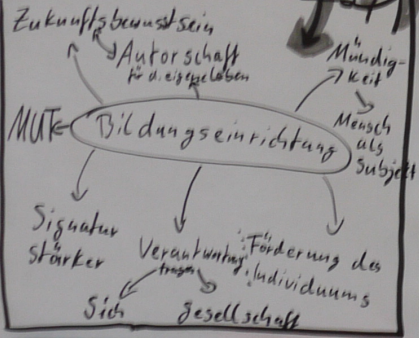 Zukunftsbewusstsein
Autorschaft
für d. eigene Leben
Mündig-
keit
Mensch
als
Subjekt
MUT
Bildungseinrichtung
Signatur
Stärker
Verantwortung
tragen
Sich
gesellschaft
Förderung des
Individuums